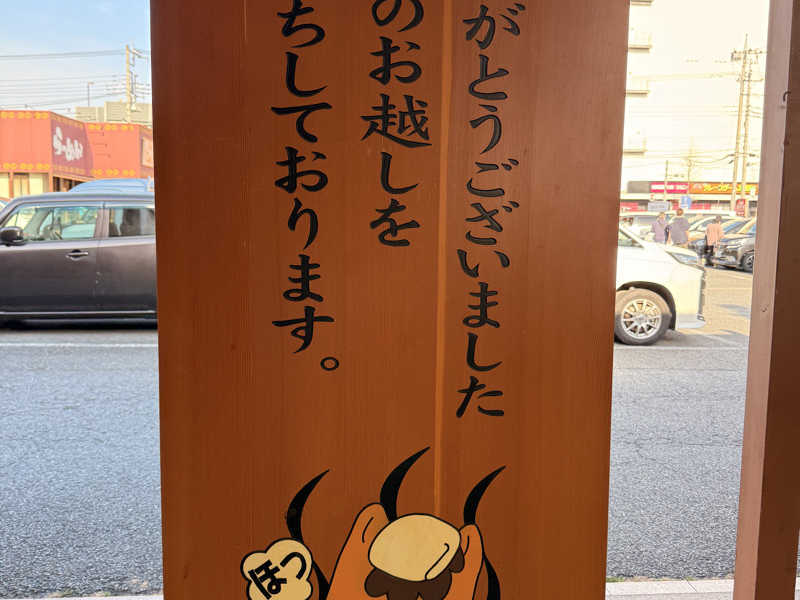 がとうございました
のお越しを
ちしております。
ほっ
らーめん